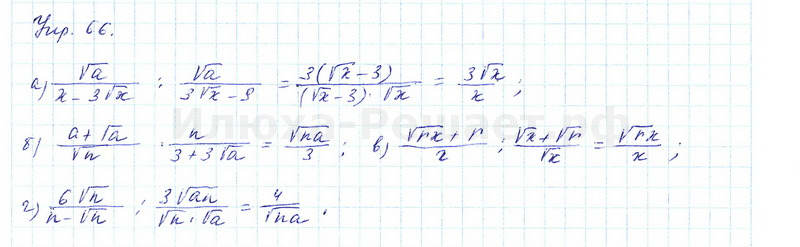 Упр. 66.
а) √a / (x - 3√x) : √a / (3√x - 9) = 3(√x - 3) / ((√x - 3) · √x) = 3√x / x ;
б) (a + √a) / √n : n / (3 + 3√a) = √(na) / 3 ; в) (√(rx) + r) / r : (√x + √r) / √x = √(rx) / x ;
г) 6√n / (n - √n) : 3√(an) / (√n · √a) = 4 / √(na) .
Илюха-Решает.рф